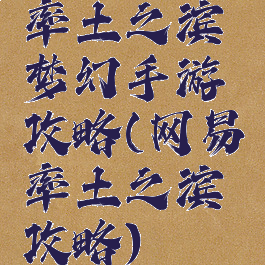 率土之滨
梦幻手游
攻略(网易
率土之滨
攻略)